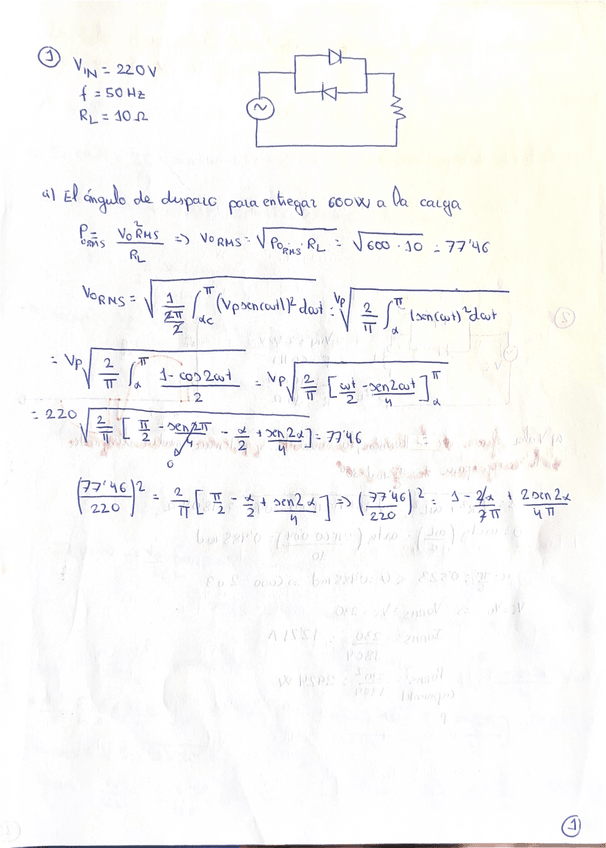 1
V_IN = 220V
f = 50 Hz
R_L = 10 Ω
~
a) El ángulo de disparo para entregar 600W a la carga
P_ORMS = V_ORMS² / R_L => V_ORMS = √(P_ORMS · R_L) = √(600 · 10) = 77'46
V_ORMS = √(1/(2π/2) ∫_αc^π (Vp sen(ωt))² dωt) = Vp √(2/π ∫_α^π (sen(ωt))² dωt
= Vp √(2/π ∫_α^π (1 - cos2ωt)/2) = Vp √(2/π [ωt/2 - sen2ωt/4]_α^π)
= 220 √(2/π [π/2 - sen2π/4 - α/2 + sen2α/4]) = 77'46
0
(77'46/220)² = 2/π [π/2 - α/2 + sen2α/4] => (77'46/220)² = 1 - 2α/2π + 2sen2α/4π
1